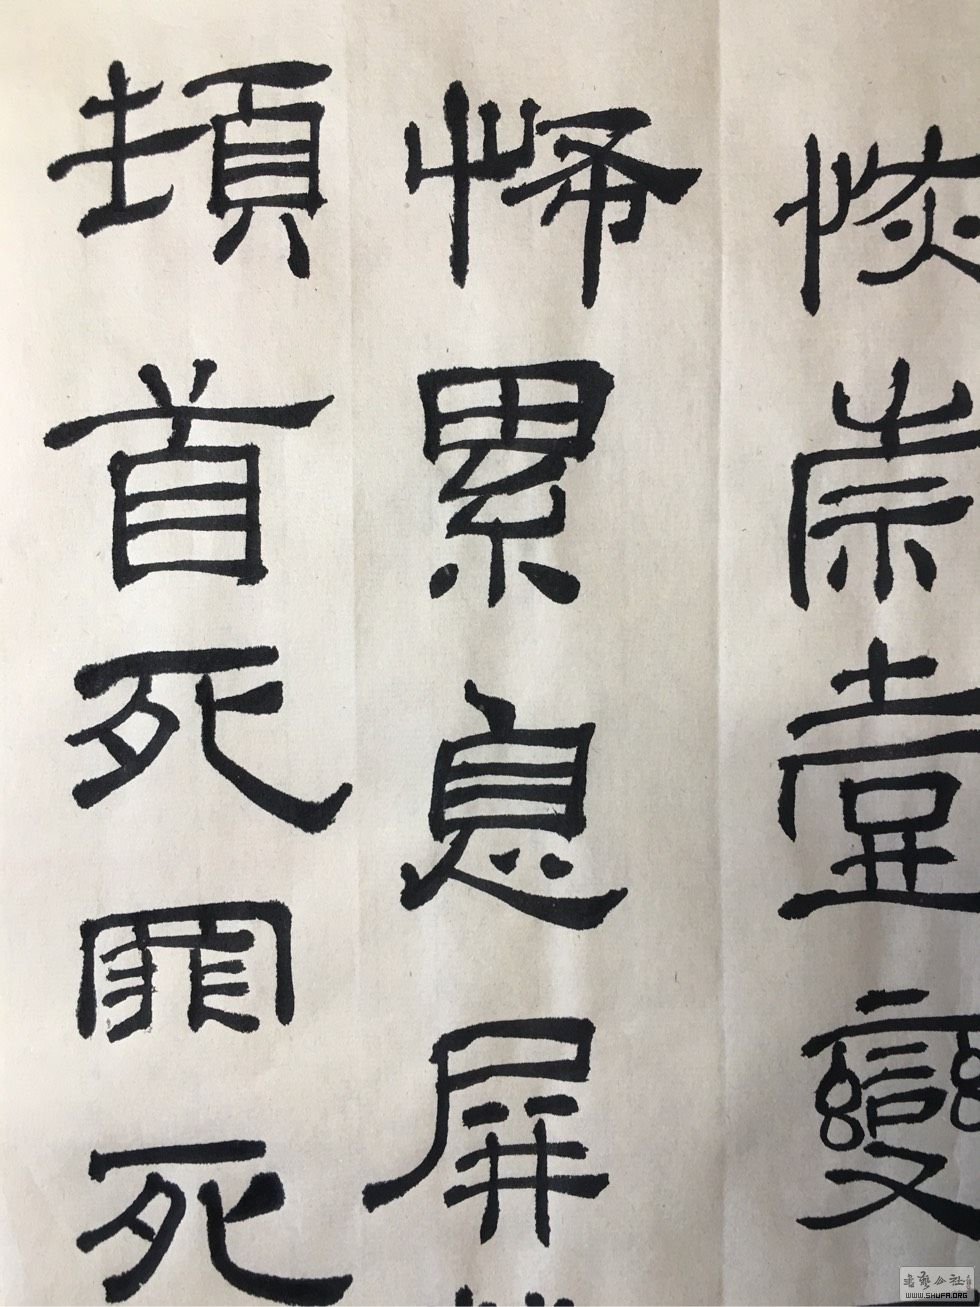 恢崇壹變
怖累息屏
頓首死罪死
书艺公社
WWW.SHUFA.ORG